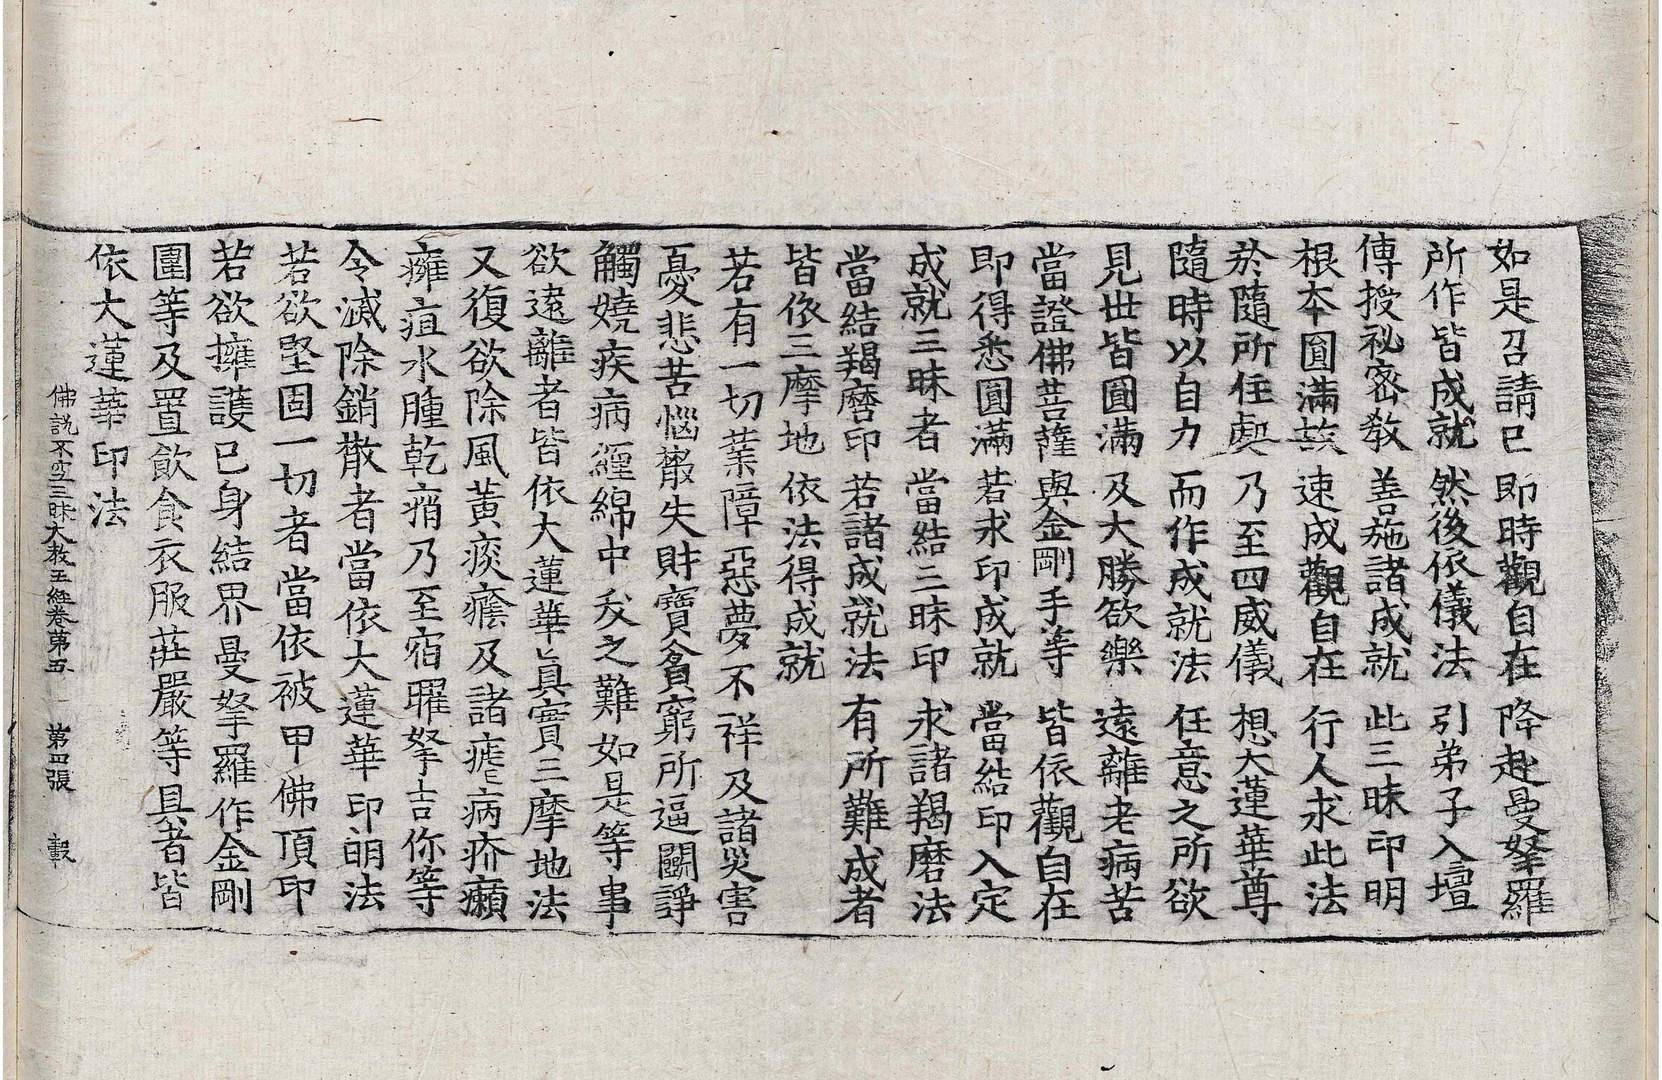 如是召請已 即時觀自在 降赴曼拏羅
所作皆成就 然後依儀法 引弟子入壇
傳授秘密教 善施諸成就 此三昧印明
根本圓滿故 速成觀自在 行人求此法
於隨所住處 乃至四威儀 想大蓮華尊
隨時以自力 而作成就法 任意之所欲
見世皆圓滿 及大勝欲樂 遠離老病苦
當證佛菩薩 與金剛手等 皆依觀自在
即得悉圓滿 若求印成就 當結印入定
成就三昧者 當結三昧印 求諸羯磨法
當結羯磨印 若諸成就法 有所難成者
皆依三摩地 依法得成就
若有一切業障惡夢不祥及諸災害
憂悲苦惱散失財寶貧窮所逼鬭諍
觸嬈疾病纏綿中夭之難如是等事
欲遠離者皆依大蓮華真實三摩地法
又復欲除風黃痰癊及諸瘧病疥癩
癰疽水腫乾痟乃至宿曜拏吉你等
令滅除銷散者當依大蓮華印明法
若欲堅固一切者當依被甲佛頂印
若欲擁護己身結界曼拏羅作金剛
圍等及置飲食衣服莊嚴等具者皆
依大蓮華印法
佛說不空三昧大教王經卷第五 第四張 轂